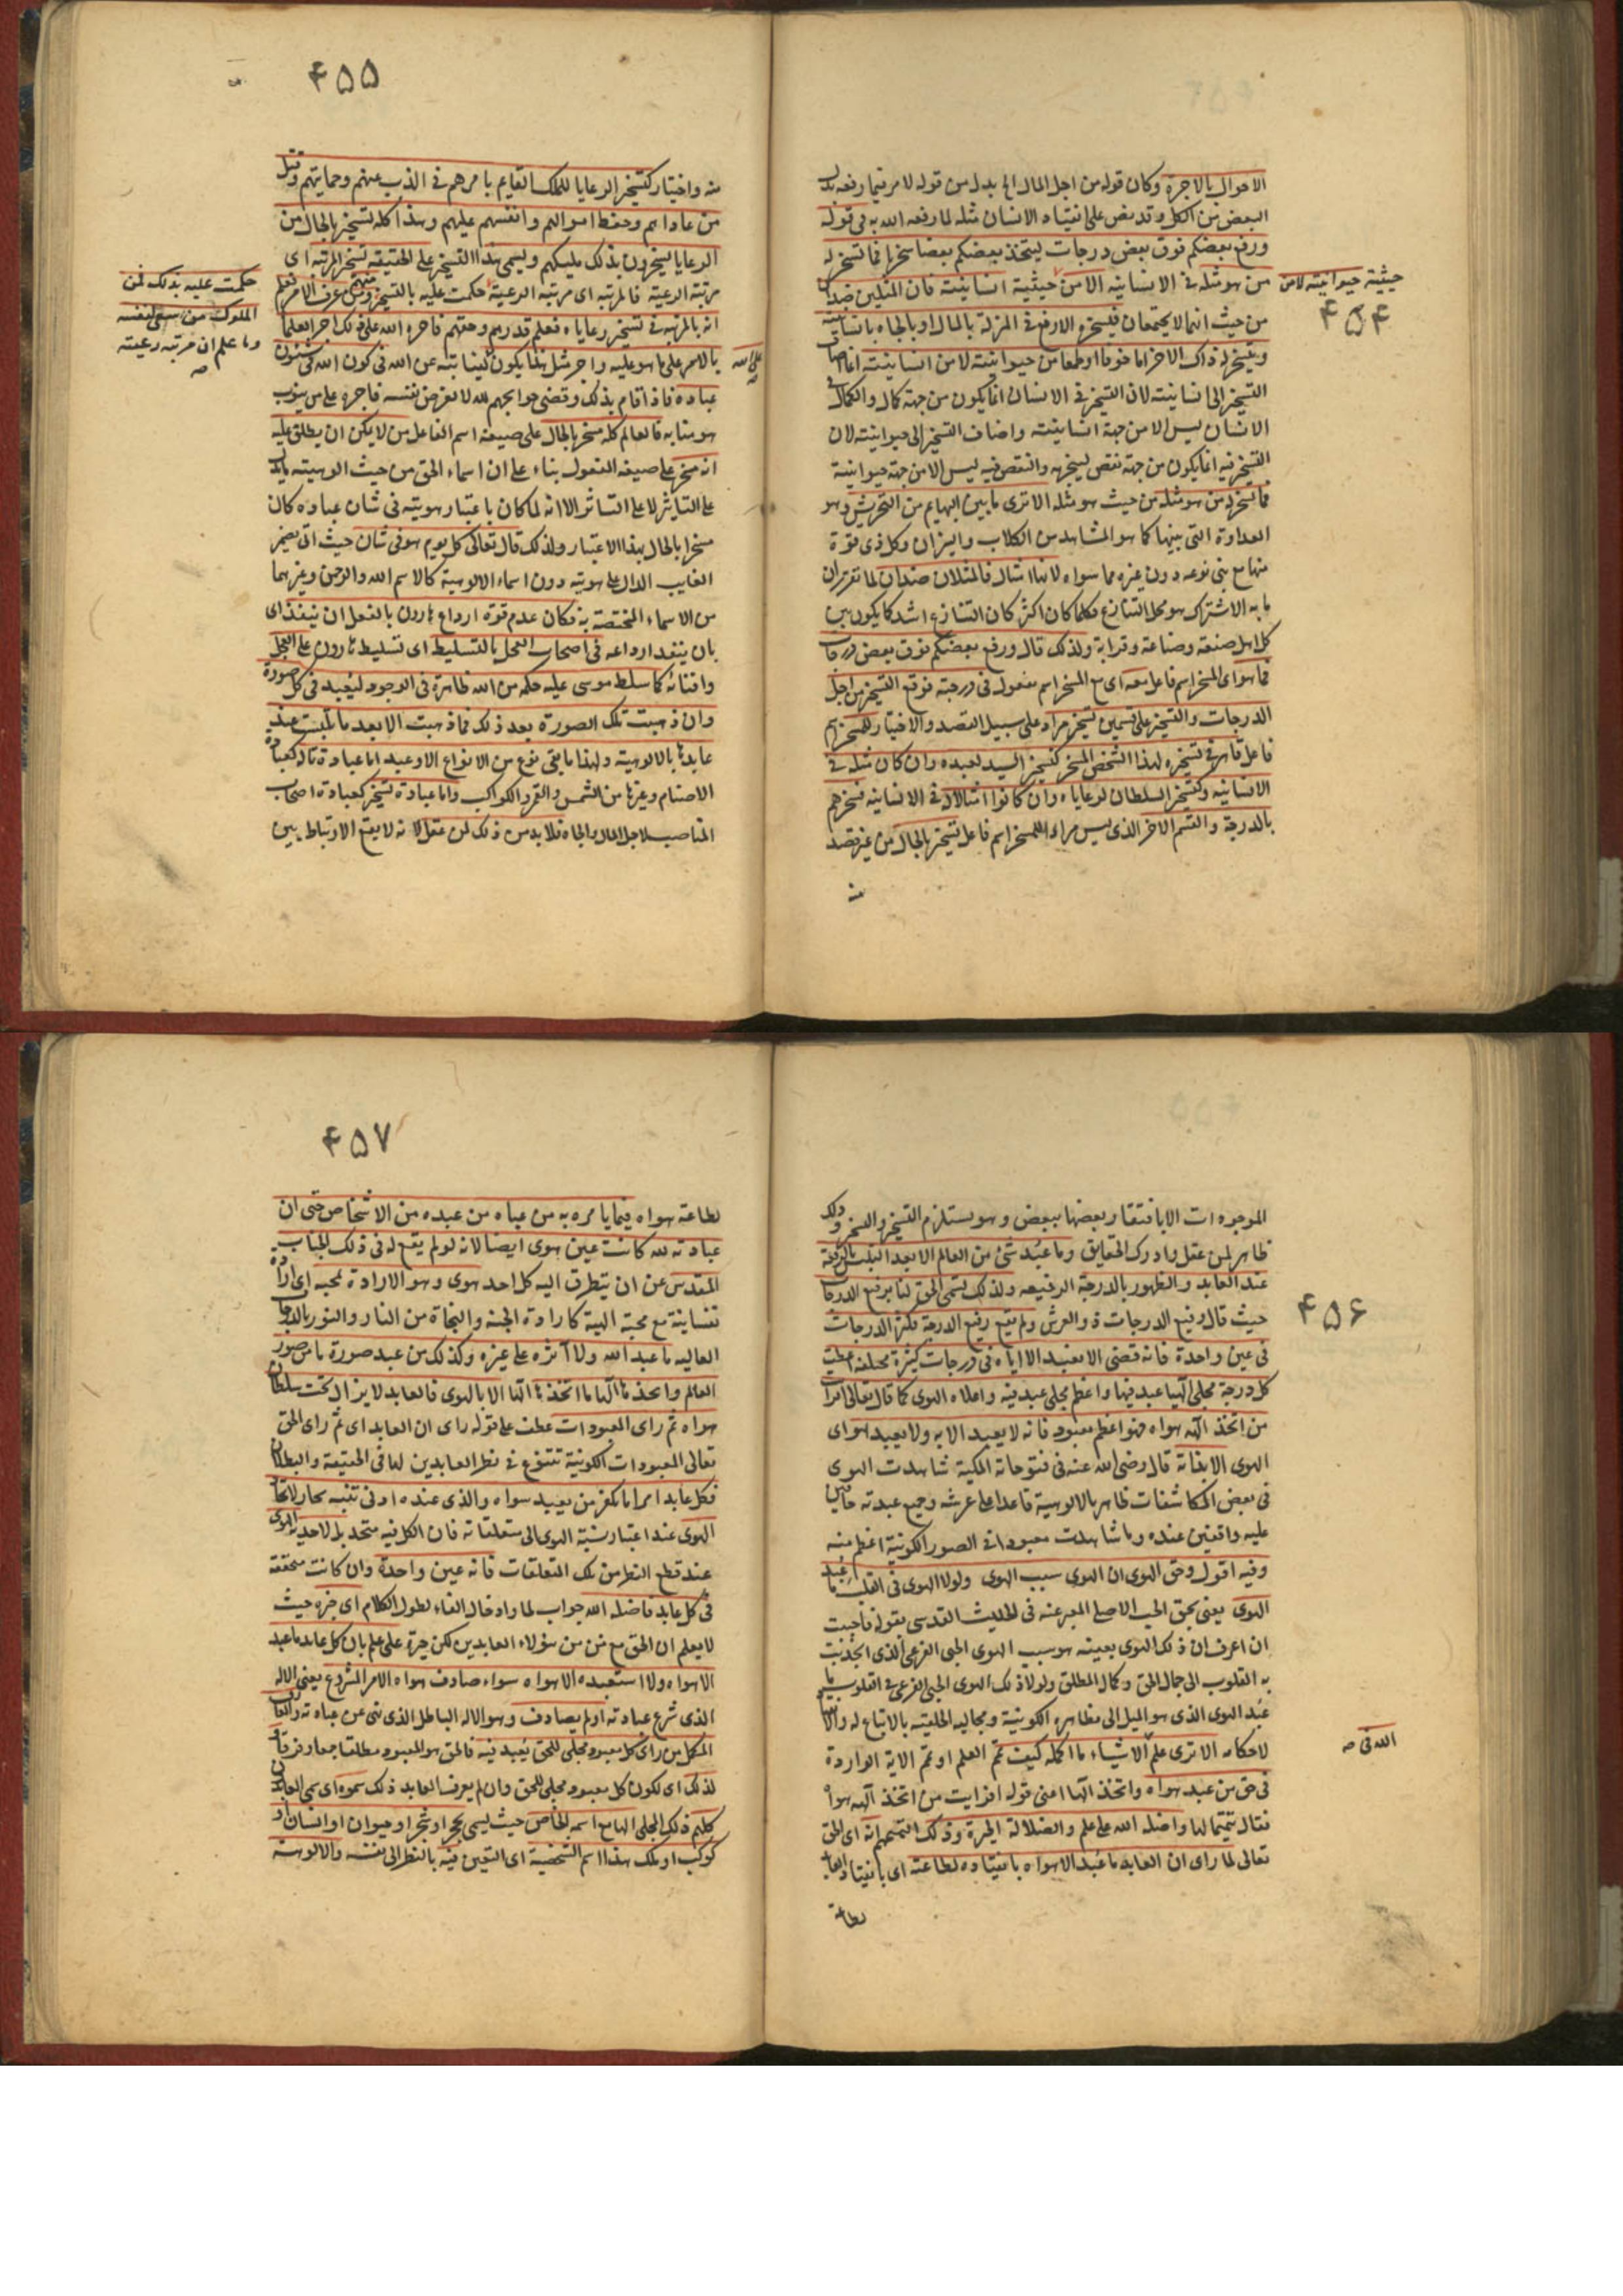 ۴۵۴
الاحوال بالاجرة وكان قوله من اجل المال الخ بدل من قوله لامر فيما رفعه بدل
البعض من الكل وقد نص على انقياد الانسان مثله لما رفعه الله به في قوله
ورفع بعضكم فوق بعض درجات ليتخذ بعضكم بعضا سخريا فما تسخر له
من هو مثله في الانسانية الا من حيثية انسانيته فان المثلين ضدان
حيثية حيوانيته لا من
من حيث انهما لا يجتمعان فيسخره الارفع في المنزلة بالمال او بالجاه بانسانيته
ويتسخر له ذاك الاخر اما خوفا او طمعا من حيوانيته لا من انسانيته انما اضاف
التسخير الى انسانيته لان التسخير في الانسان انما يكون من جهة كمال والكمال في
الانسان ليس الا من جهة انسانيته واضاف التسخر الى حيوانيته لان
التسخر فيه انما يكون من جهة نقص ليجبره والنقص فيه ليس الا من جهة حيوانيته
فما تسخر له من هو مثله من حيث هو مثله الا ترى ما بين البهايم من التحريش وهو
العداوة التى بينها كما هو المشاهد من الكلاب والبزان وكل ذى قوة
منها مع بنى نوعه دون غيره مما سواه لانها امثال فالمثلان ضدان لما تقرر ان
ما به الاشتراك هو محل التنازع فكلما كان اكثر كان التنازع اشد كما يكون بين
كل اهل صنعة وصناعة وقرابة ولذلك قال ورفع بعضكم فوق بعض درجات
فما هو اى المسخر اسم فاعل معه اى مع المسخر اسم مفعول في درجته فوقع التسخير من اجل
الدرجات والتسخير على قسمين تسخير مراد على سبيل القصد والاختيار للمسخر اسم
فاعل قاهر في تسخيره لهذا الشخص المسخر كتسخير السيد لعبده وان كان مثله في
الانسانية وكتسخير السلطان لرعاياه وان كانوا امثالا له في الانسانية فسخرهم
بالدرجة والقسم الاخر الذى ليس مرادا للمسخر اسم فاعل تسخير بالحال من غير قصد
منه
۴۵۵
منه واختيار كتسخير الرعايا للملك القايم بامرهم في الذب عنهم وحمايتهم وقتل
من عاداهم وحفظ اموالهم وانفسهم عليهم وهذا كله تسخير بالحال من
الرعايا يسخرون بذلك مليكهم ويسمى هذا التسخير على الحقيقة تسخير المرتبة اى
مرتبة الرعية فالمرتبة اى مرتبة الرعية حكمت عليه بالتسخير ومنهم من عرف الامر فعلم
حكمت عليه بذلك فمن
الملوك من سعى لنفسه
وما علم ان مرتبة رعيته
انه بالمرتبة في تسخير رعاياه فعلم قدرهم وحقهم فاجره الله على ذلك اجر العلماء
بالامر على ما هو عليه واجر مثل هذا يكون لنيابته عن الله في كون الله في شئون
على الله
عباده فاذا قام بذلك وقضى حوايجهم لله لا لغرض نفسه فاجره على من ينوب
هو منابه فالعالم كله مسخر بالحال على صيغة اسم الفاعل من لا يمكن ان يطلق عليه
انه مسخر على صيغة المفعول بناء على ان اسماء الحق من حيث الوهيته يدل
على التاثير لا على التاثر الا انه لما كان باعتبار هويته في شان عباده كان
مسخرا بالحال بهذا الاعتبار ولذلك قال تعالى كل يوم هو في شان حيث اتى بضمير
الغايب الدال على هويته دون اسماء الالوهية كالاسم الله والرحمن وغيرهما
من الاسماء المختصة به فكان عدم قوة ارداع هارون بالفعل ان ينفذ اى
بان ينفذ ارداعه في اصحاب العجل بالتسليط اى تسليط هارون على العجل
وافنائه كما سلط موسى عليه حكمة من الله ظاهرة في الوجود ليعبد في كل صورة
وان ذهبت تلك الصورة بعد ذلك فما ذهبت الا بعد ما تلبست عند
عابدها بالالوهية ولهذا ما بقى نوع من الانواع الا وعبد اما عبادة تاله كعبادة
الاصنام وغيرها من الشمس والقمر والكواكب واما عبادة تسخير كعبادة اصحاب
المناصب لاجل المال والجاه فلا بد من ذلك لمن عقل لانه لا يقع الارتباط بين
۴۵۶
الموجودات الا بافتقار بعضها ببعض وهو يستلزم التسخير والتسخر وذلك
ظاهر لمن عقل وادرك الحقايق وما عبد شئ من العالم الا بعد التلبس بالرفعة
عند العابد والظهور بالدرجة الرفيعة ولذلك تسمى الحق لنا برفيع الدرجات
حيث قال رفيع الدرجات ذو العرش ولم يقع رفيع الدرجة فكثر الدرجات
في عين واحدة فانه قضى الا نعبد الا اياه في درجات كثيرة مختلفة اعطت
كل درجة مجلى الهيا عبد فيها واعظم مجلى عبد فيه واعلاه الهوى كما قال تعالى افرايت
من اتخذ الهه هواه فهو اعظم معبود فانه لا يعبد الا به ولا يعبد هو اى
الهوى الا بذاته قال رضى الله عنه في فتوحاته المكية شاهدت الهوى
في بعض المكاشفات ظاهر بالالوهية قاعدا على عرشه وجميع عبدته حافين
عليه واقفين عنده وما شاهدت معبودا في الصور الكونية اعظم منه
وفيه اقول وحق الهوى ان الهوى سبب الهوى ولولا الهوى في القلب ما عبد
الهوى يعنى بحق الحب الاصلى المعبر عنه في الحديث القدسى بقوله فاحببت
ان اعرف ان ذلك الهوى بعينه هو سبب الهوى الحبى الفرعى الذى انجذبت
به القلوب الى جمال الحق وكمال المطلق ولولا ذلك الهوى الحبى الفرعى في القلوب ما
عبد الهوى الذى هو الميل الى مظاهره الكونية ومجاليه الخلقية بالاتباع له والانقياد
لاحكامه الا ترى علم الاشياء ما اكمله كيف تمم العلم او تمم الاية الواردة
الله في
في حق من عبد هواه واتخذ الها اعنى قوله افرايت من اتخذ الهه هواه
فقال تتميما لها واضله الله على علم والضلالة الحيرة وذلك التتميم انه اى الحق
تعالى لما راى ان العابد ما عبد الا هواه بانقياده لطاعته اى بانقياد العابد
لطاعة
۴۵۷
لطاعة هواه فيما يامره به من عباده من عبده من الاشخاص حتى ان
عبادته لله كانت عين هوى ايضا لانه لو لم يقع له في ذلك الجناب
المقدس عن ان يتطرق اليه كل احد هوى وهو الارادة لمحبة اى ارادة
نفسانية مع محبة الهية كارادة الجنة والنجاة من النار والفوز بالدرجات
العالية ما عبد الله ولا آثره على غيره وكذلك من عبد صورة ما من صور
العالم واتخذ ها الها ما اتخذ ها الها الا بالهوى فالعابد لا يزال تحت سلطان
هواه ثم راى المعبودات عطف على قوله راى ان العابد اى ثم راى الحق
تعالى المعبودات الكونية تتنوع في نظر العابدين لها في الحقيقة والبطلان
فكل عابد امرا ما يكفر من يعبد سواه والذى عنده ادنى تنبه يحار لاتحاد
الهوى عند اعتبار نسبة الهوى الى متعلقاته فان الكل فيه متحد بل لاحدية الهوى
عند قطع النظر من تلك التعلقات فانه عين واحدة وان كانت متحققة
في كل عابد فاضله الله جواب لما واد خال الفاء لطول الكلام اى حيره حيث
لا يعلم ان الحق مع من من هؤلاء العابدين لكن حيرة على علم بان كل عابد ما عبد
الا هواه ولا استعبده الا هواه سواء صادف هواه الامر المشروع يعنى الاله
الذى شرع عبادته او لم يصادف وهو الاله الباطل الذى نهى عن عبادته والعارف
المكمل من راى كل معبود مجلى للحق يعبد فيه فالحق هو المعبود مطلقا جمعا وفرقا
لذلك اى لكون كل معبود مجلى للحق وان لم يعرف العابد ذلك سموه اى سمى العابدون
كلهم ذلك المجلى الها مع اسمه الخاص حيث يسمى بحجر او شجر او حيوان او انسان او
كوكب او ملك هذا اسم الشخصية اى التعين فيه بالنظر الى نفسه والالوهية